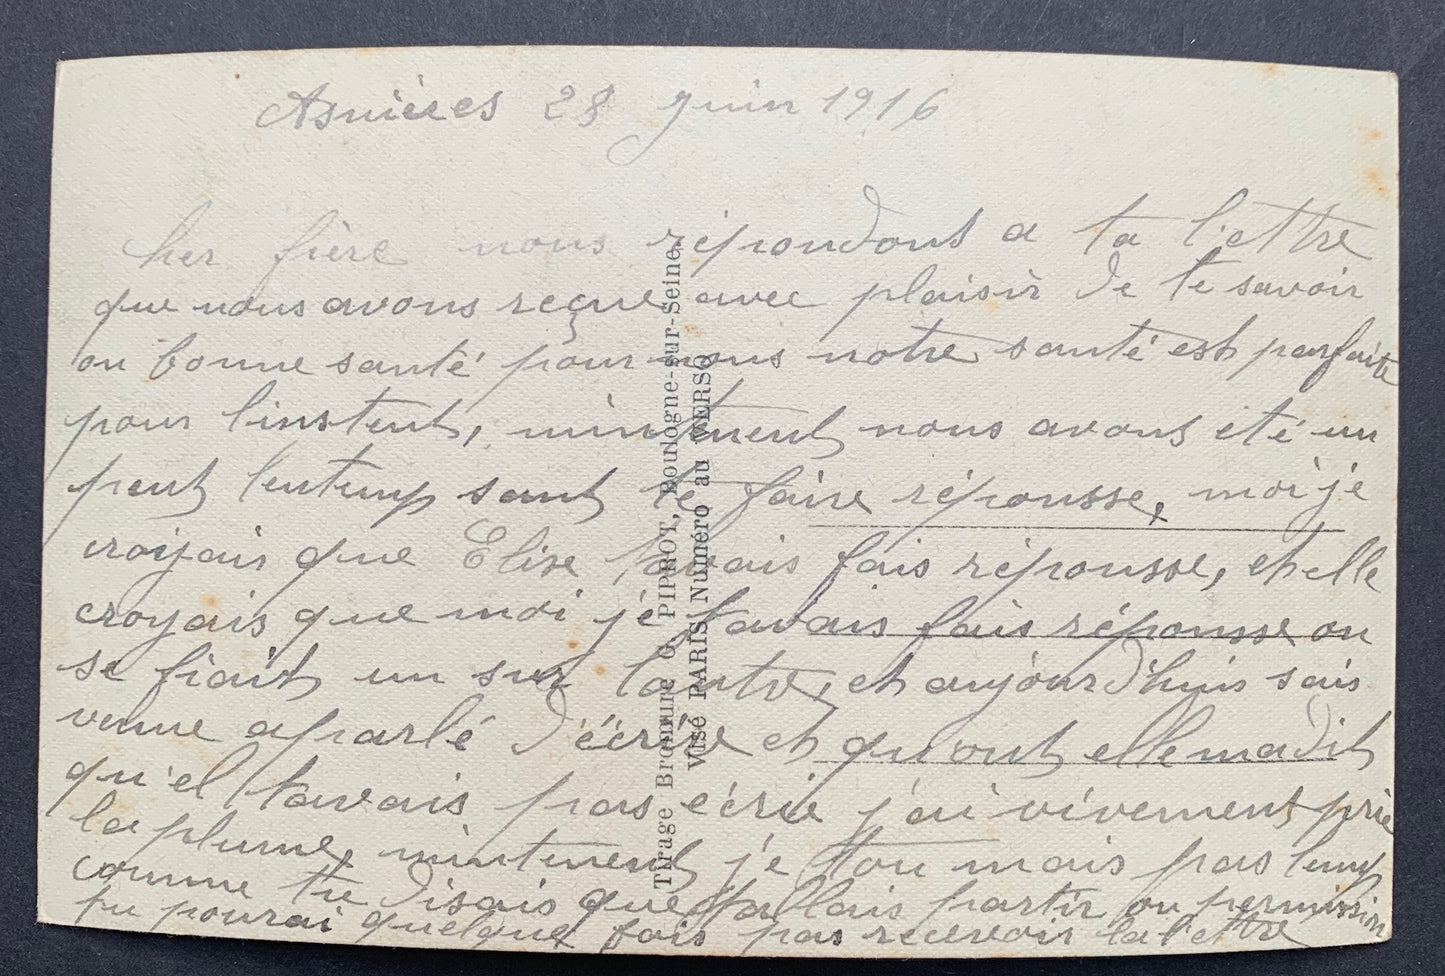 Asnières 28 juin 1916
her frère nous répondons a ta lettre
que nous avons reçue avec plaisir de te savoir
on bonne santé pour nous notre santé est parfaite
pour l'instent, mintenent nous avons été un
peut lentemp sant te faire répousse, moi je
croyais que Elise tavais fais répousse, et elle
croyais que moi je tavais fais répousse on
se fiait un sur lautre, et aujourd'huis sais
venue a parlé d'écrire et qu'ont elle ma dit
qu'el tavais pas écrie j'ai vivement prie
la plume, mintenent je tou mais pas temp
comme tu disais que tallais partir on permission
tu pourai quelque fois pas recevoir la lettre
Tirage Bromure G. PIPROT, Boulogne-sur-Seine,
Visé PARIS Numéro au VERSO